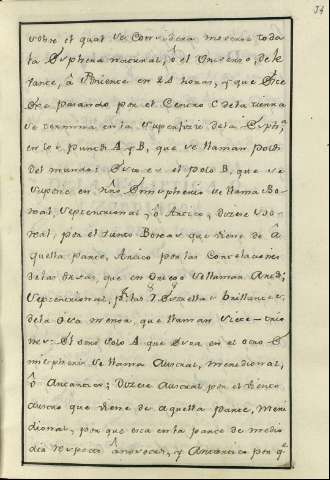 34
sobre el qual se considera moverse toda
la Esphera nacural, ô el Universo, de le
bance, â Poniente en 24 horas, y que este
Exe pasando por el Centro C de la tierra
se termina en la superficie de la Esph.ª
en los puncos A y B, que se llaman polos
del mundo: El uno es el polo B, que se
supone en nrô Emispherio se llama Bo-
real, septencrional, ô Arcico, Dizese Bo-
real, por el viento Boreas que viene de â
quella parte, Arcico por las Constelaciones
de las Orsas, que en Griego se llaman Arctos;
septencrional, por las 7 Estrellas brillantes,
de la Orsa menor, que llaman siete-trio
nes: El otro Polo A que esta en el otro E
mispherio se llama Austral, meridional,
ô Antarcico; Dizese Austral por el viento
Austro que viene de aquella parte, Meri
dional, porque esta en la parte de medio
dia respecto â nosotros, y Antarcico por q.e